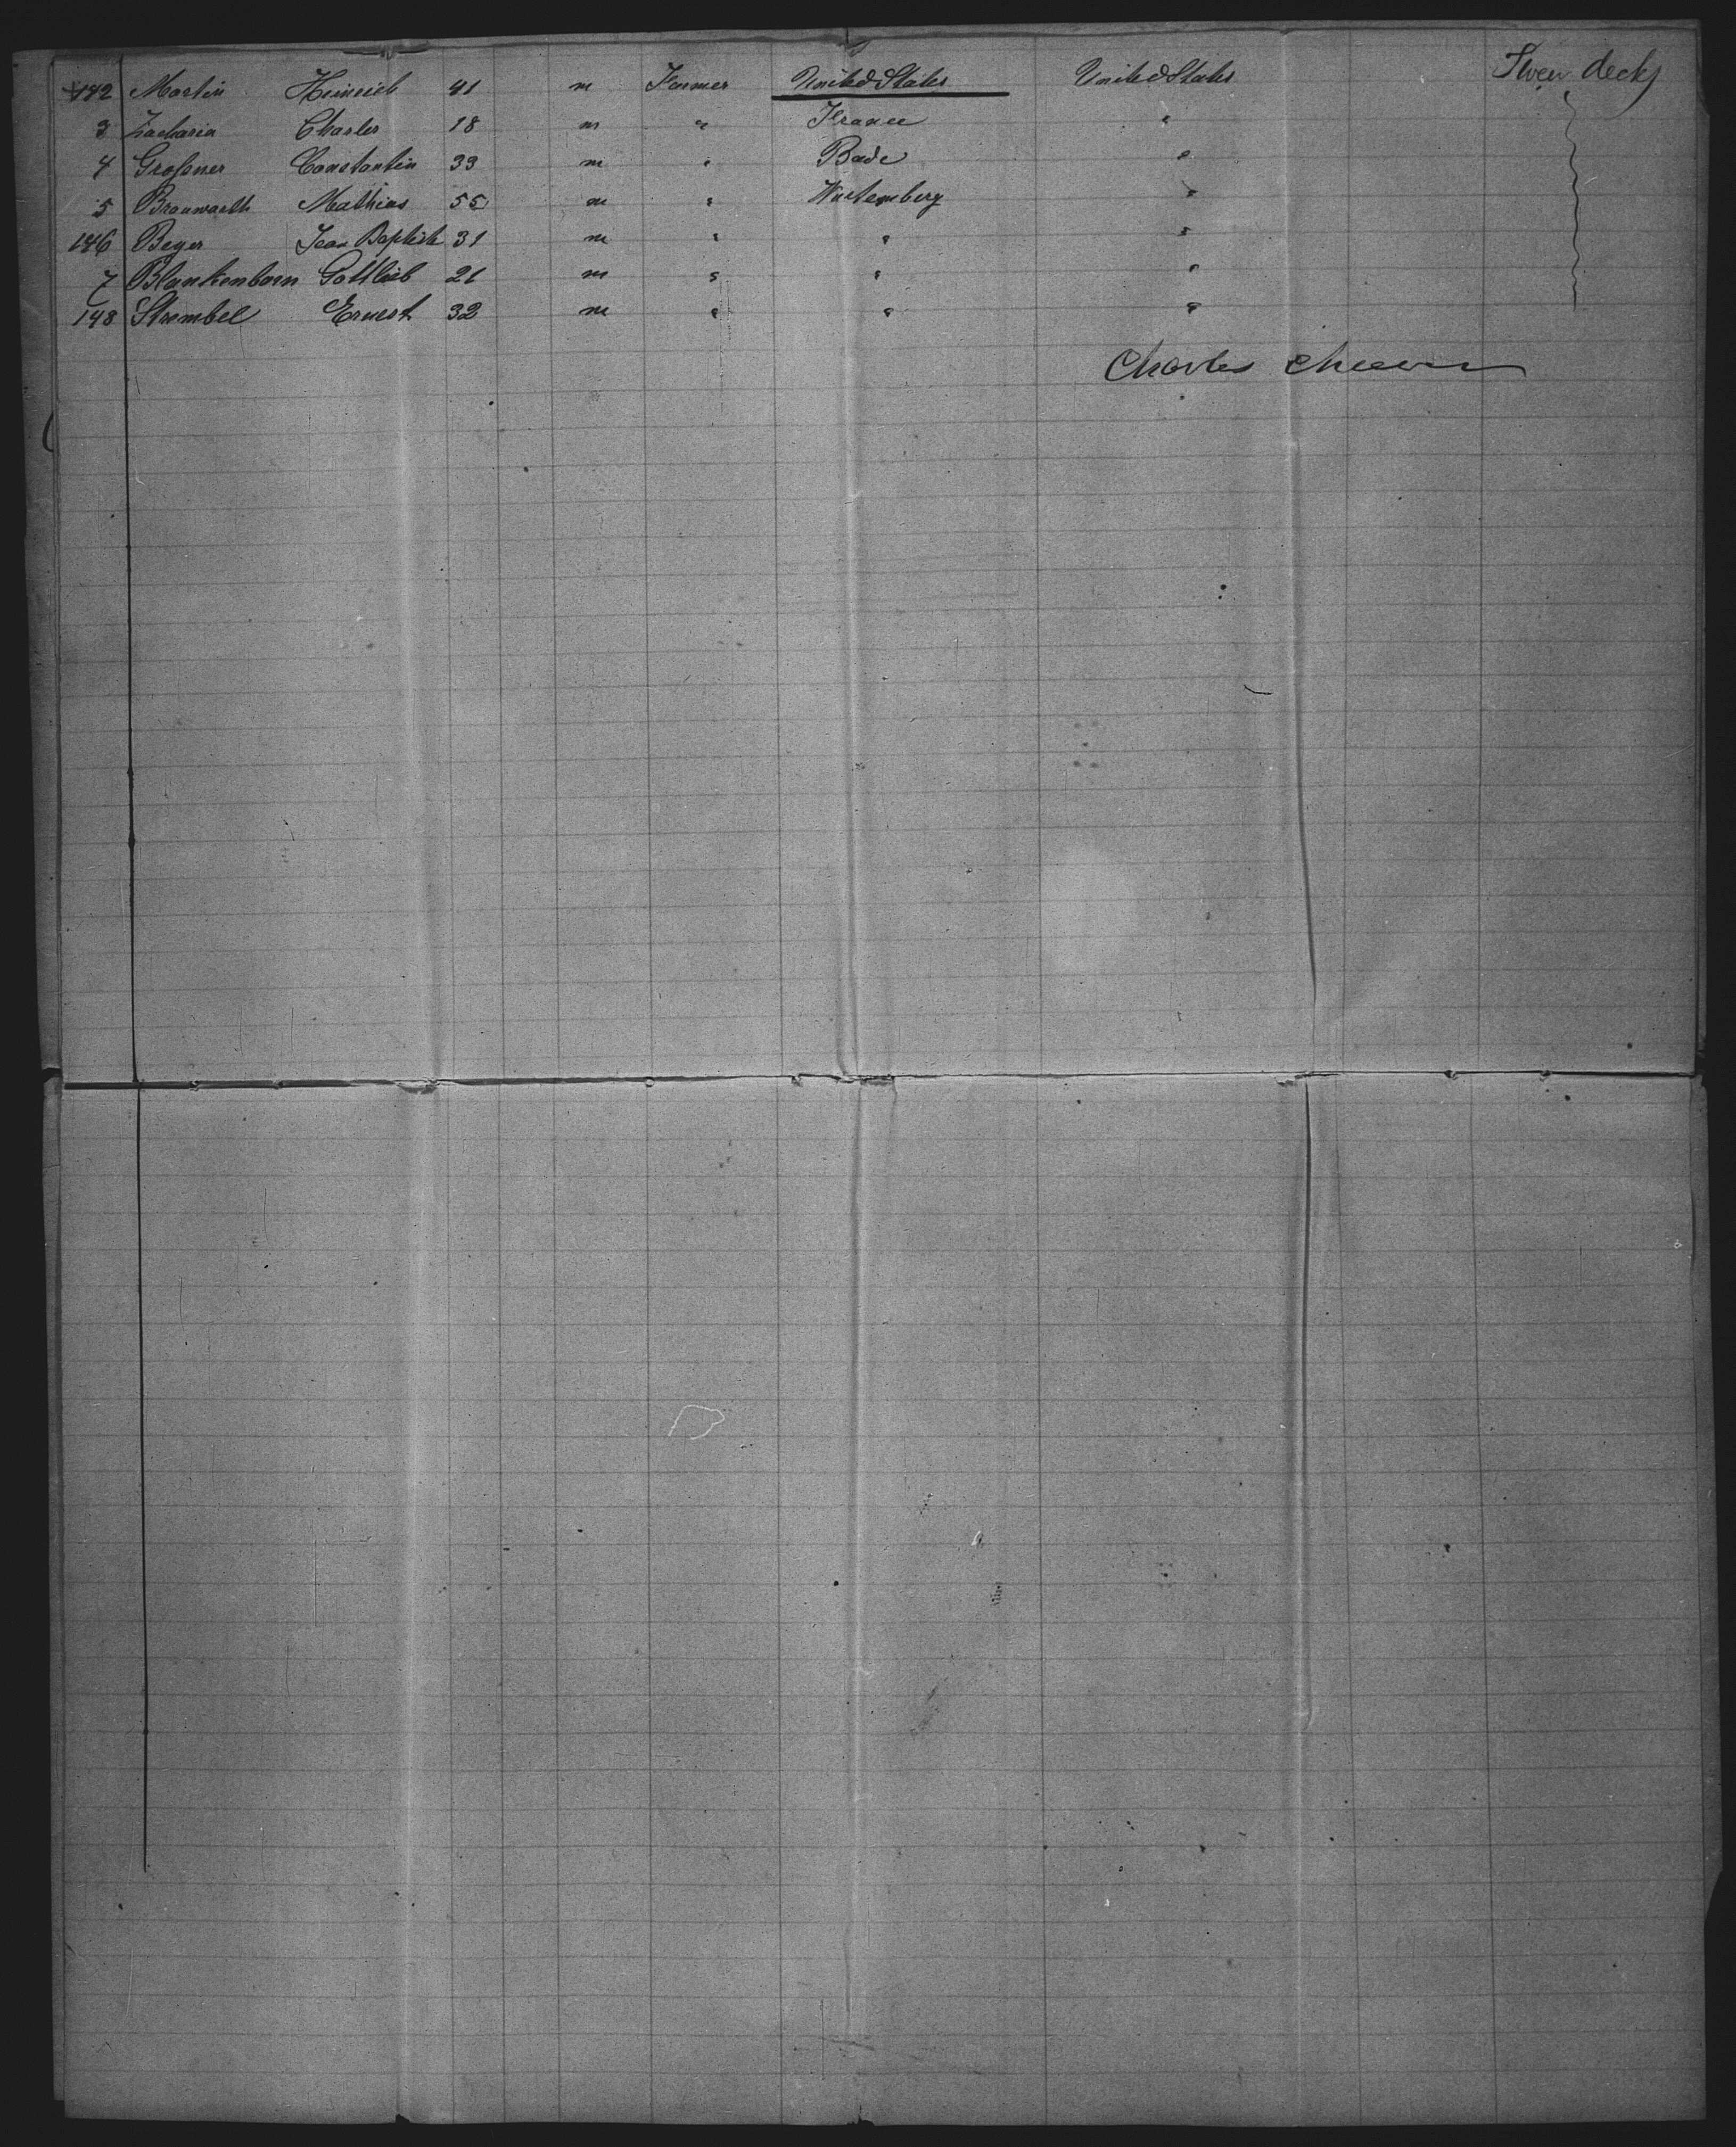 142 Martin Heinrich 41 m Farmer United States United States Tween decks
3 Zacharia Charles 18 m " France "
4 Großner Constantin 33 m " Bade "
5 Braunwarth Mathias 55 m " Wurtemberg "
146 Beyer Jean Baptiste 31 m " " "
7 Blankenborn Gottlieb 21 m " " "
148 Strembel Ernest 32 m " " "
Charles